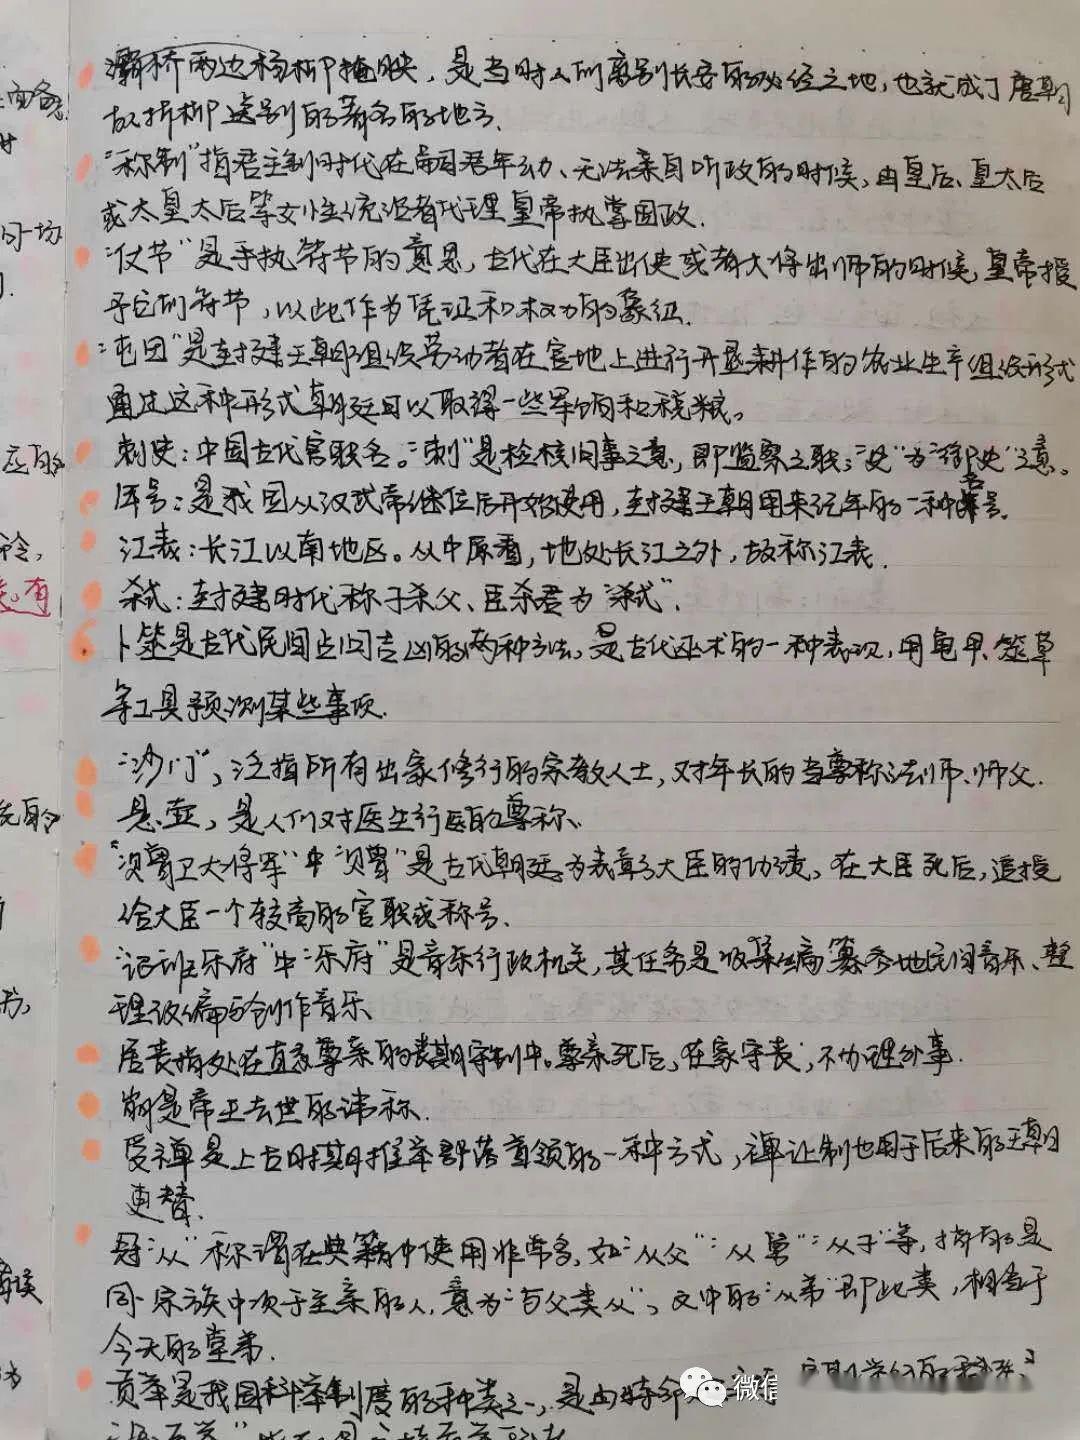 灞桥两边杨柳掩映，是当时人们离别长安的必经之地，也就成了唐朝
故折柳送别的著名的地方.
“称制”指君主制时代在嗣君年幼、无法亲自听政的时候，由皇后、皇太后
或太皇太后等女性统治者代理皇帝执掌国政.
“仗节”是手执符节的意思，古代在大臣出使或者大将出师的时候，皇帝授
予它们符节，以此作为凭证和权力的象征.
“屯田”是封建王朝组织劳动者在官地上进行开垦耕作的农业生产组织形式
通过这种形式朝廷可以取得一些军饷和税粮。
刺史：中国古代官职名。“刺”是检核问事之意，即监察之职；“史”为“御史”之意。
年号：是我国从汉武帝继位后开始使用，封建王朝用来纪年的一种名号。
江表：长江以南地区。从中原看，地处长江之外，故称江表.
杀弑：封建时代称子杀父、臣杀君为“弑”.
卜筮是古代民间占问吉凶的两种方法，是古代巫术的一种表现，用龟甲、筮草
等工具预测某些事项.
“沙门”，泛指所有出家修行的宗教人士，对年长的当尊称法师、师父.
悬壶，是人们对医生行医的尊称、
“赠卫大将军”中“赠”是古代朝廷为表彰大臣的功绩，在大臣死后，追授
给大臣一个较高的官职或称号、
乐府“中“乐府”是音乐行政机关，其任务是收集编纂各地民间音乐、整
理改编与创作音乐、
居丧指处在直系尊亲的丧期守制中。尊亲死后，在家守丧，不办理外事.
崩是帝王去世的讳称.
受禅是上古时期推举部落首领的一种方式，禅让制也用于后来的王朝
更替.
冠“从”称谓在典籍中使用非常多，如“从父”“从舅”“从子”等，指的是
同宗族中次于至亲的人，意为“与父类从”，文中的“从弟”即此类，相当于
今天的堂弟.
贡举是我国科举制度的种类之一，是由
微信